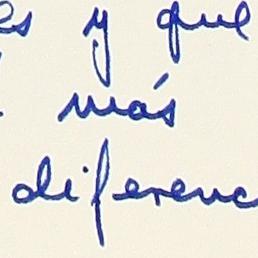 es y que
más
diferenc